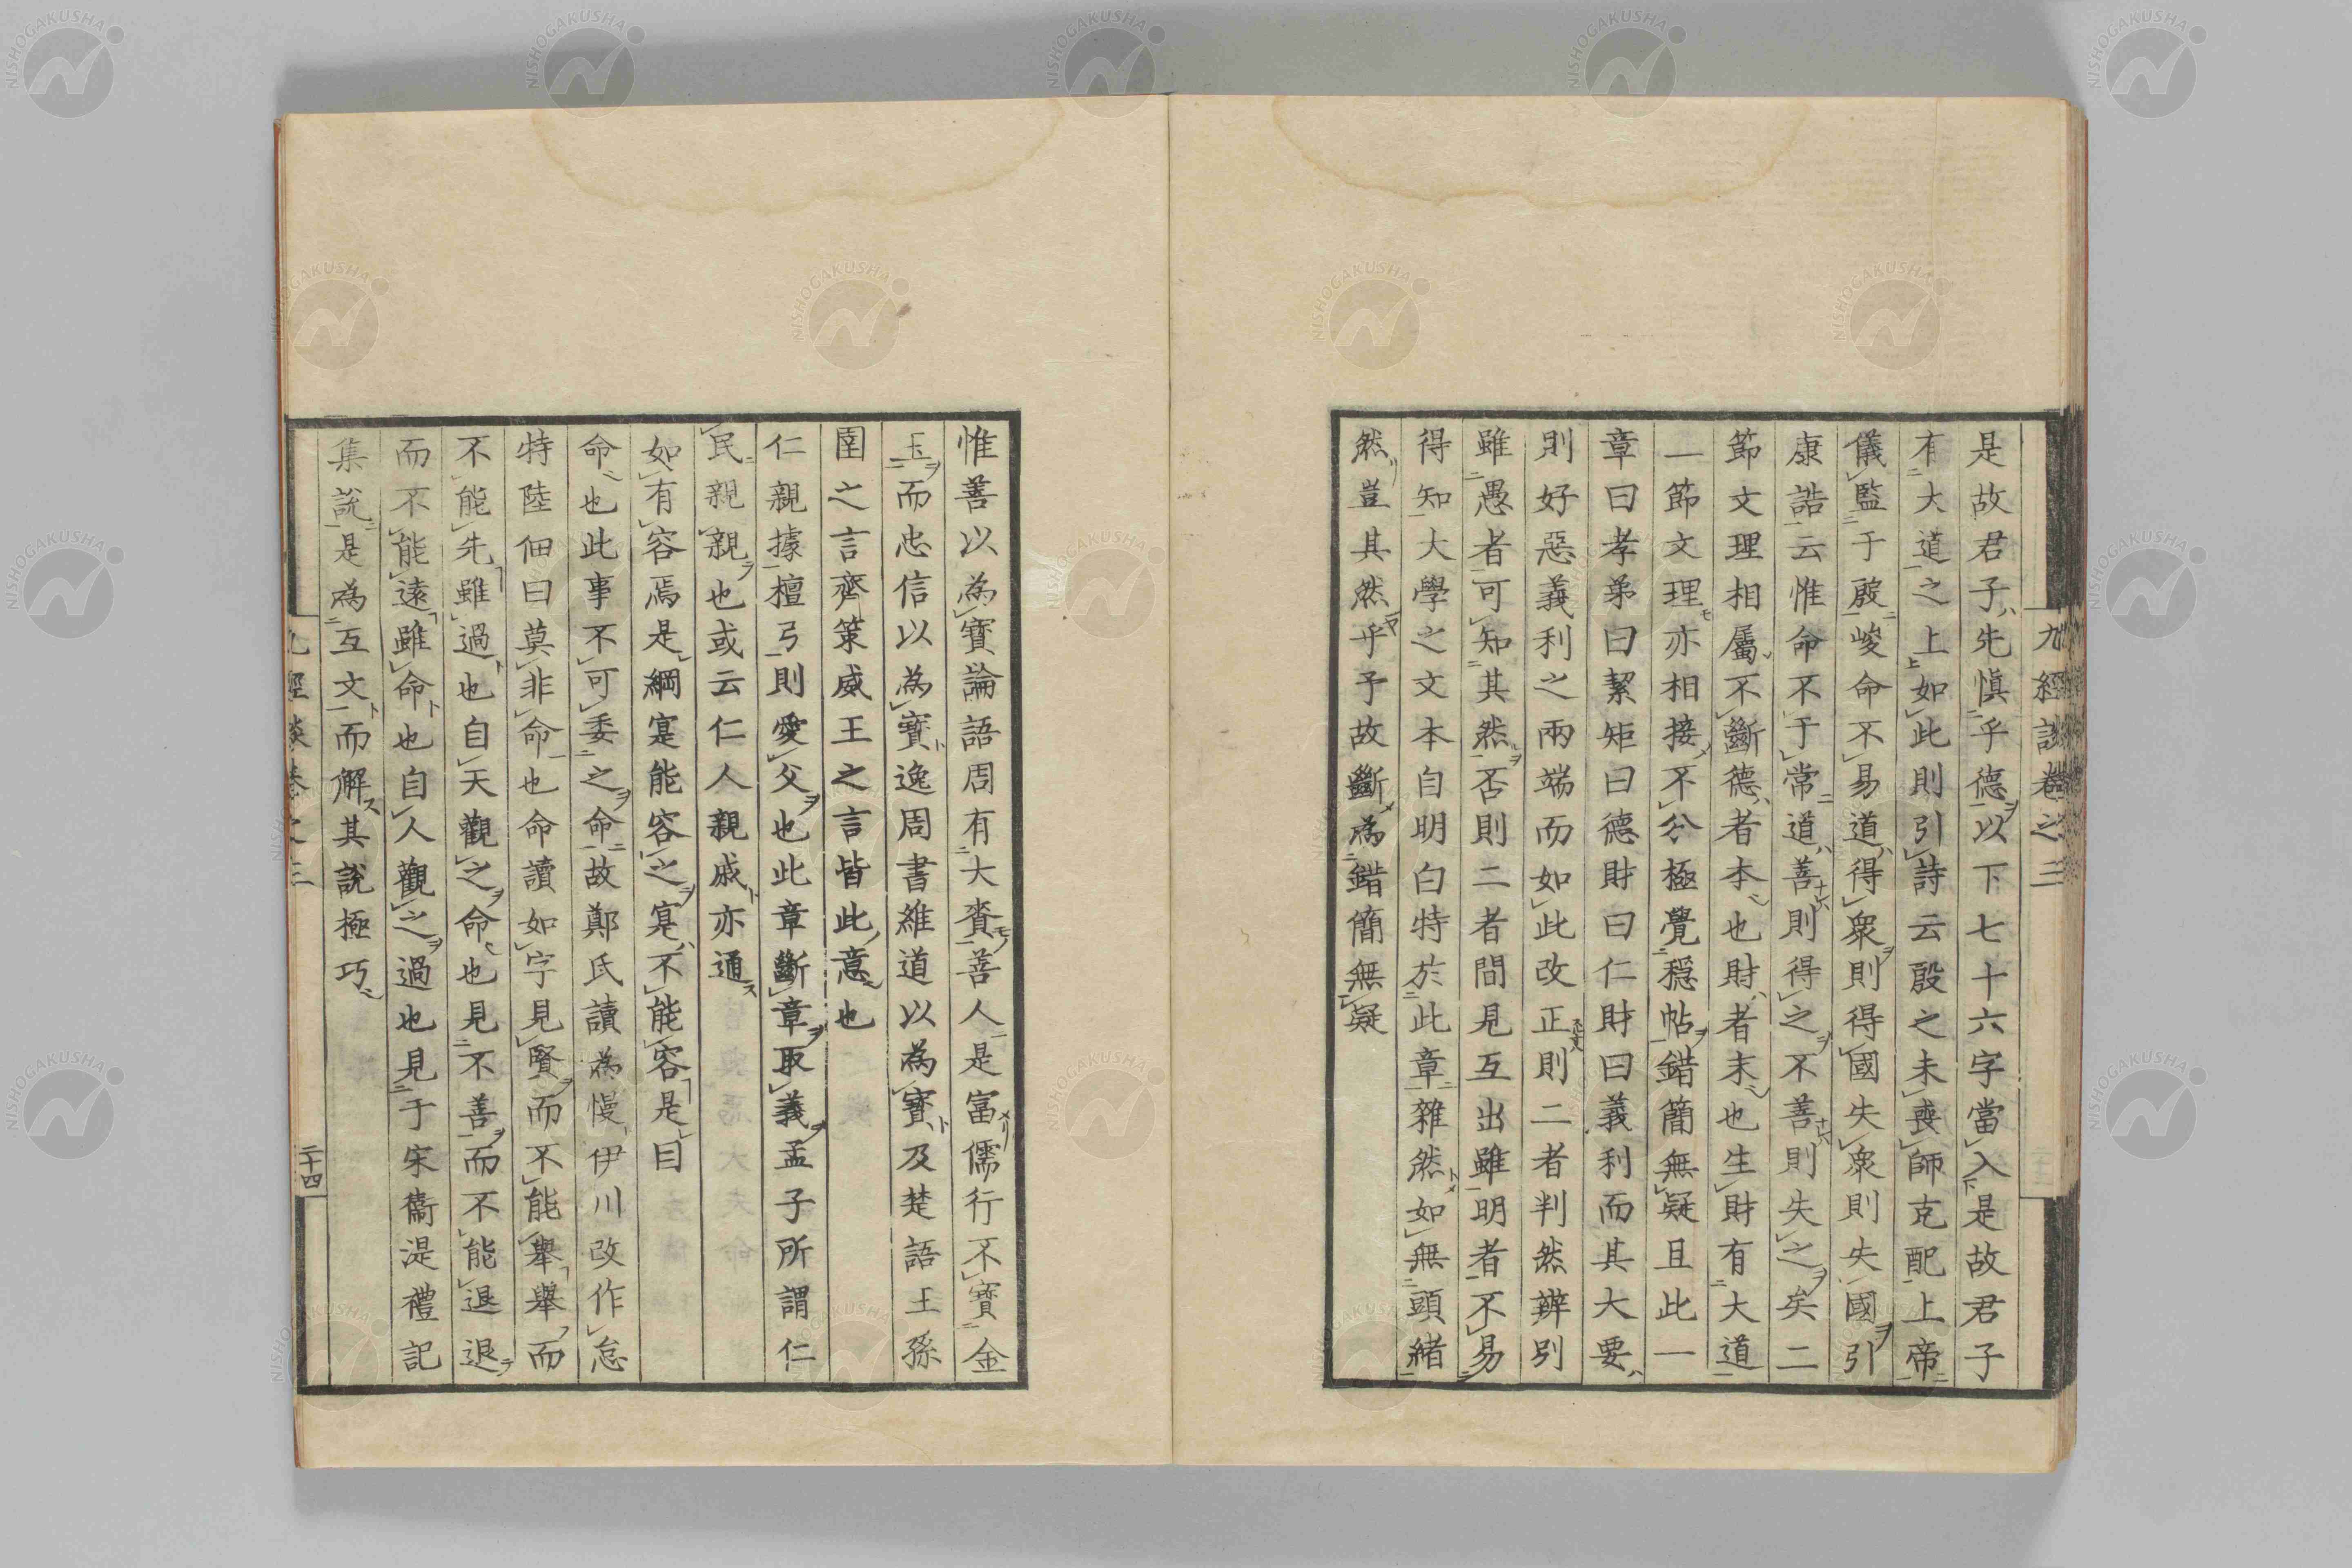 九經談卷之三
是故君子先愼乎德以下七十六字當入是故君子
有大道之上如此則引詩云殷之未喪師克配上帝
儀監于殷峻命不易道得衆則得國失衆則失國引
康誥云惟命不于常道善則得之不善則失之矣二
節文理相屬不斷德者本也財者末也生財有大道
一節文理亦相接不分極覺穩帖錯簡無疑且此一
章曰孝弟曰絜矩曰德財曰仁財曰義利而其大要
則好惡義利之兩端而如此改正則二者判然辨別
雖愚者可知其然否則二者間見互出雖明者不易
得知大學之文本自明白特於此章雜然如無頭緒
然豈其然乎予故斷爲錯簡無疑
惟善以為寶論語周有大賚善人是富儒行不寶金
玉而忠信以為寶逸周書維道以為寶及楚語王孫
圉之言齊策威王之言皆此意也
仁親據檀弓則愛父也此章斷章取義孟子所謂仁
民親親也或云仁人親戚亦通
如有容焉是綱寔能容之寔不能容是目
命也此事不可委之命故鄭氏讀為慢伊川改作怠
特陸佃曰莫非命也命讀如字見賢而不能舉舉而
不能先雖過也自天觀之命也見不善而不能退退
而不能遠雖命也自人觀之過也見于宋衞湜禮記
集說是為互文而解其說極巧
九經談卷之三
二十四
NISHOGAKUSHA